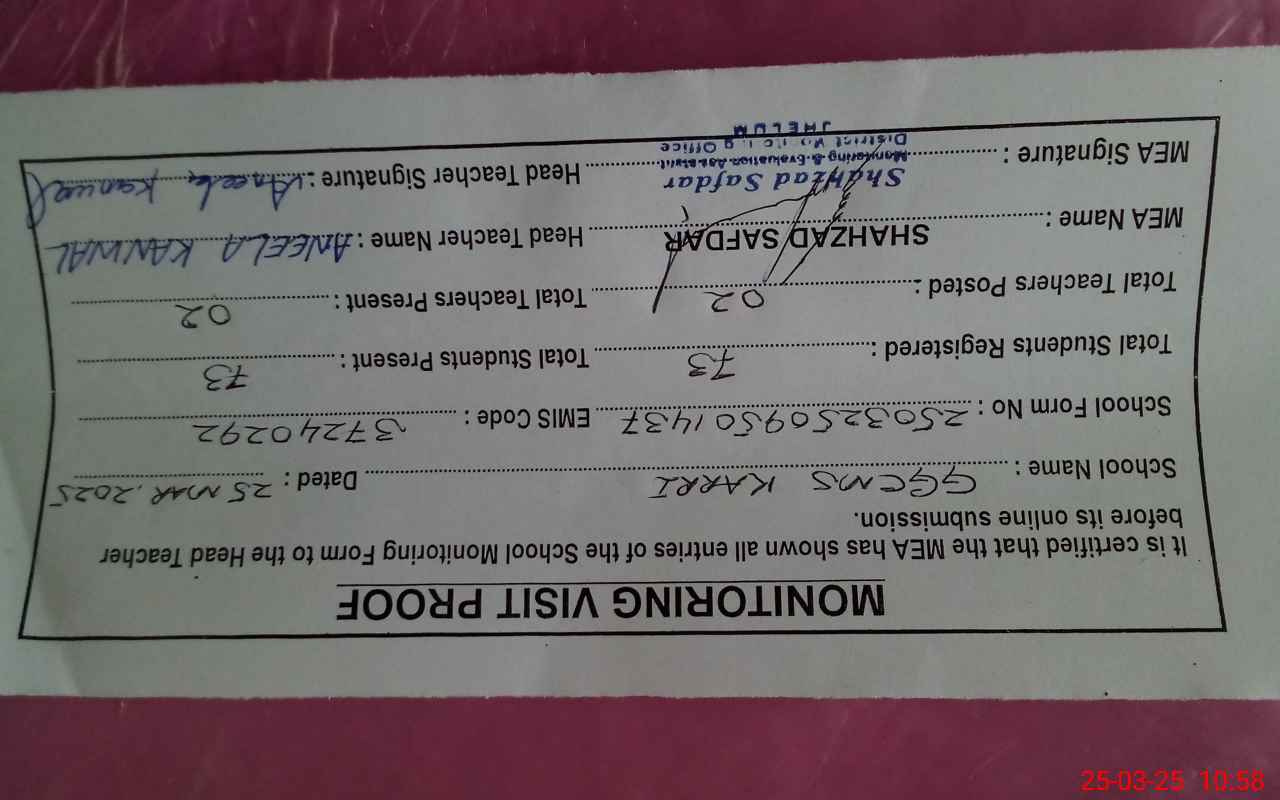 MONITORING VISIT PROOF
It is certified that the MEA has shown all entries of the School Monitoring Form to the Head Teacher
before its online submission.
School Name : GGCMS KARRI Dated : 25 MAR, 2025
School Form No : 25032509501437 EMIS Code : 37240292
Total Students Registered : 73 Total Students Present : 73
Total Teachers Posted : 02 Total Teachers Present : 02
MEA Name : SHAHZAD SAFDAR Head Teacher Name : ANEELA KANWAL
MEA Signature : Head Teacher Signature : Aneela Kanwal
Shahzad Safdar
Monitoring & Evaluation Assistant
District Monitoring Office
JHELUM
25-03-25 10:58